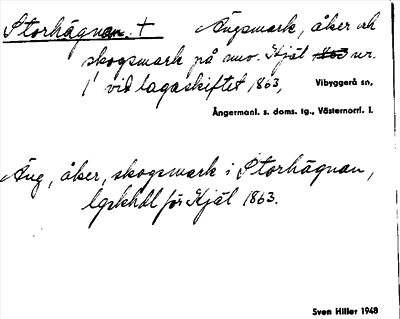 Storhägnan. † Ängsmark, åker och
skogsmark på mo. Kjäl 1863 nr.
1 vid lagaskiftet 1863, Vibyggerå sn,
Ångermanl. s. doms. tg., Västernorrl. l.
Äng, åker, skogsmark i Storhägnan,
lgskhdl för Kjäl 1863.
Sven Hiller 1948